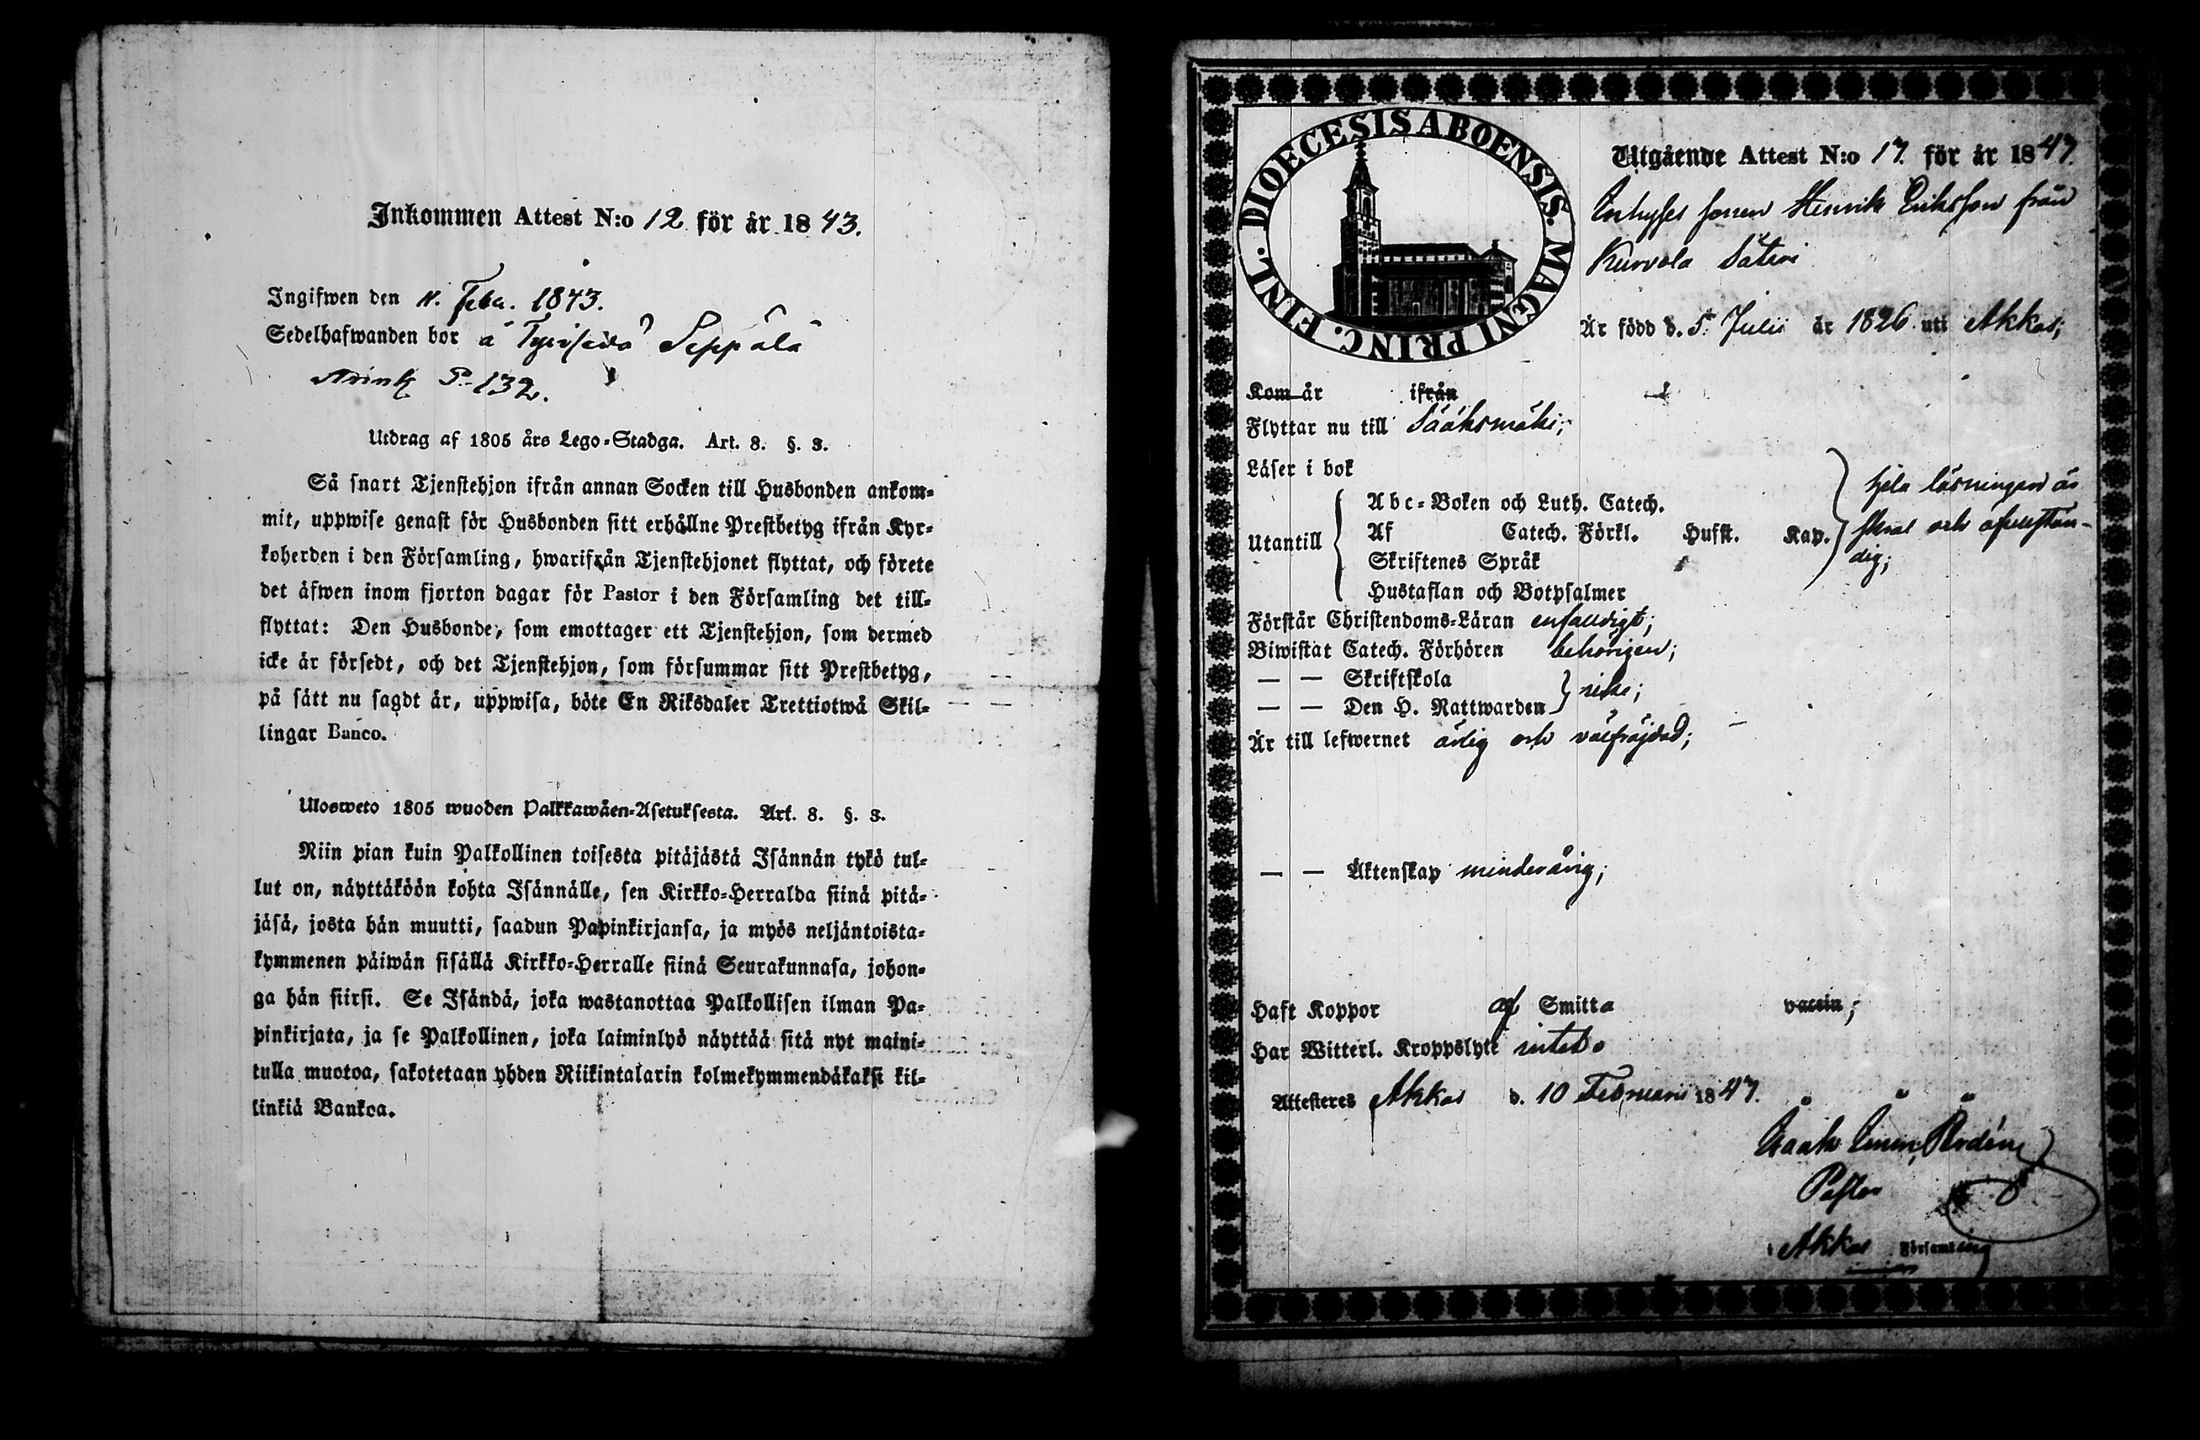 Inkommen Attest N:o 12 för år 1843.
Ingifwen den 11. Febr. 1843.
Sedelhafwanden bor á Seppälä
P. 132.
Utdrag af 1805 års Lego-Stadga. Art. 8. §. 3.
Så snart Tjenstehjon ifrån annan Socken till Husbonden ankom-
mit, uppwise genast för Husbonden sitt erhållne Prestbetyg ifrån Kyr-
koherden i den Församling, hwarifrån Tjenstehjonet flyttat, och förete
det äfwen inom fjorton dagar för Pastor i den Församling det till-
flyttat: Den Husbonde, som emottager ett Tjenstehjon, som dermed
icke är försedt, och det Tjenstehjon, som försummar sitt Prestbetyg,
på sätt nu sagdt är, uppwisa, böte En Riksdaler Trettiotwå Skil-
lingar Banco.
Ulosweto 1805 wuoden Palkkawäen-Asetuksesta. Art. 8. §. 3.
Niin pian kuin Palkollinen toisesta pitäjästä Isännän tykö tul-
lut on, näyttäköön kohta Isännälle, sen Kirkko-Herralda siinä pitä-
jäsä, josta hän muutti, saadun Papinkirjansa, ja myös neljäntoista-
kymmenen päiwän sisällä Kirkko-Herralle siinä Seurakunnasa, johon-
ga hän siirsi. Se Isändä, joka wastanottaa Palkollisen ilman Pa-
pinkirjata, ja se Palkollinen, joka laiminlyö näyttää sitä nyt maini-
tulla muotoa, sakotetaan yhden Riikintalarin kolmekymmendäkaksi kil-
linkiä Bankoa.
DIOECESIS ABOENSIS. MAGNI PRINC. FINL.
Utgående Attest N:o 17. för år 1847.
Inhyses sonen Henrik Eriksson från
Kurvola Säteri
Är född d. 5. Julii år 1826 uti Akkas;
Kom år ifrån
Flyttar nu till Sääksmäki;
Läser i bok
Utantill
Abc-Boken och Luth. Catech.
Af Catech. Förkl. Husst. Kap.
Skriftenes Språk
Hustaflan och Botpsalmer
hela läsningen är
dig;
Förstår Christendoms-Läran enfaldigt;
Biwistat Catech. Förhören behörigen;
— — Skriftskola
— — Den H. Nattwarden icke;
Är till lefwernet ärlig och välfräjdad;
— — Äktenskap minderårig;
Haft Koppor af Smitta vaccin;
Har Witterl. Kroppslyte intet.
Attesteres Akkas d. 10 Februarii 1847.
Pastor
i Akkas Församling